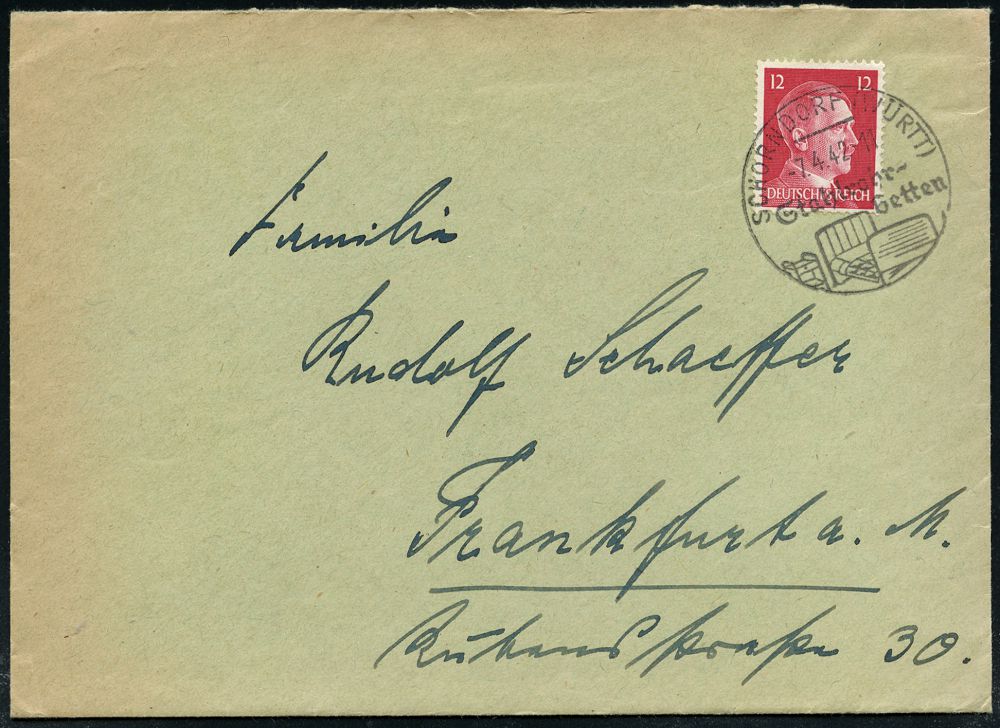 12 12
DEUTSCHES REICH
SCHORNDORF (WÜRTT)
-7.4.42-11
betten
Familie
Rudolf Schaeffer
Frankfurt a. M.
Rubensstraße 30.